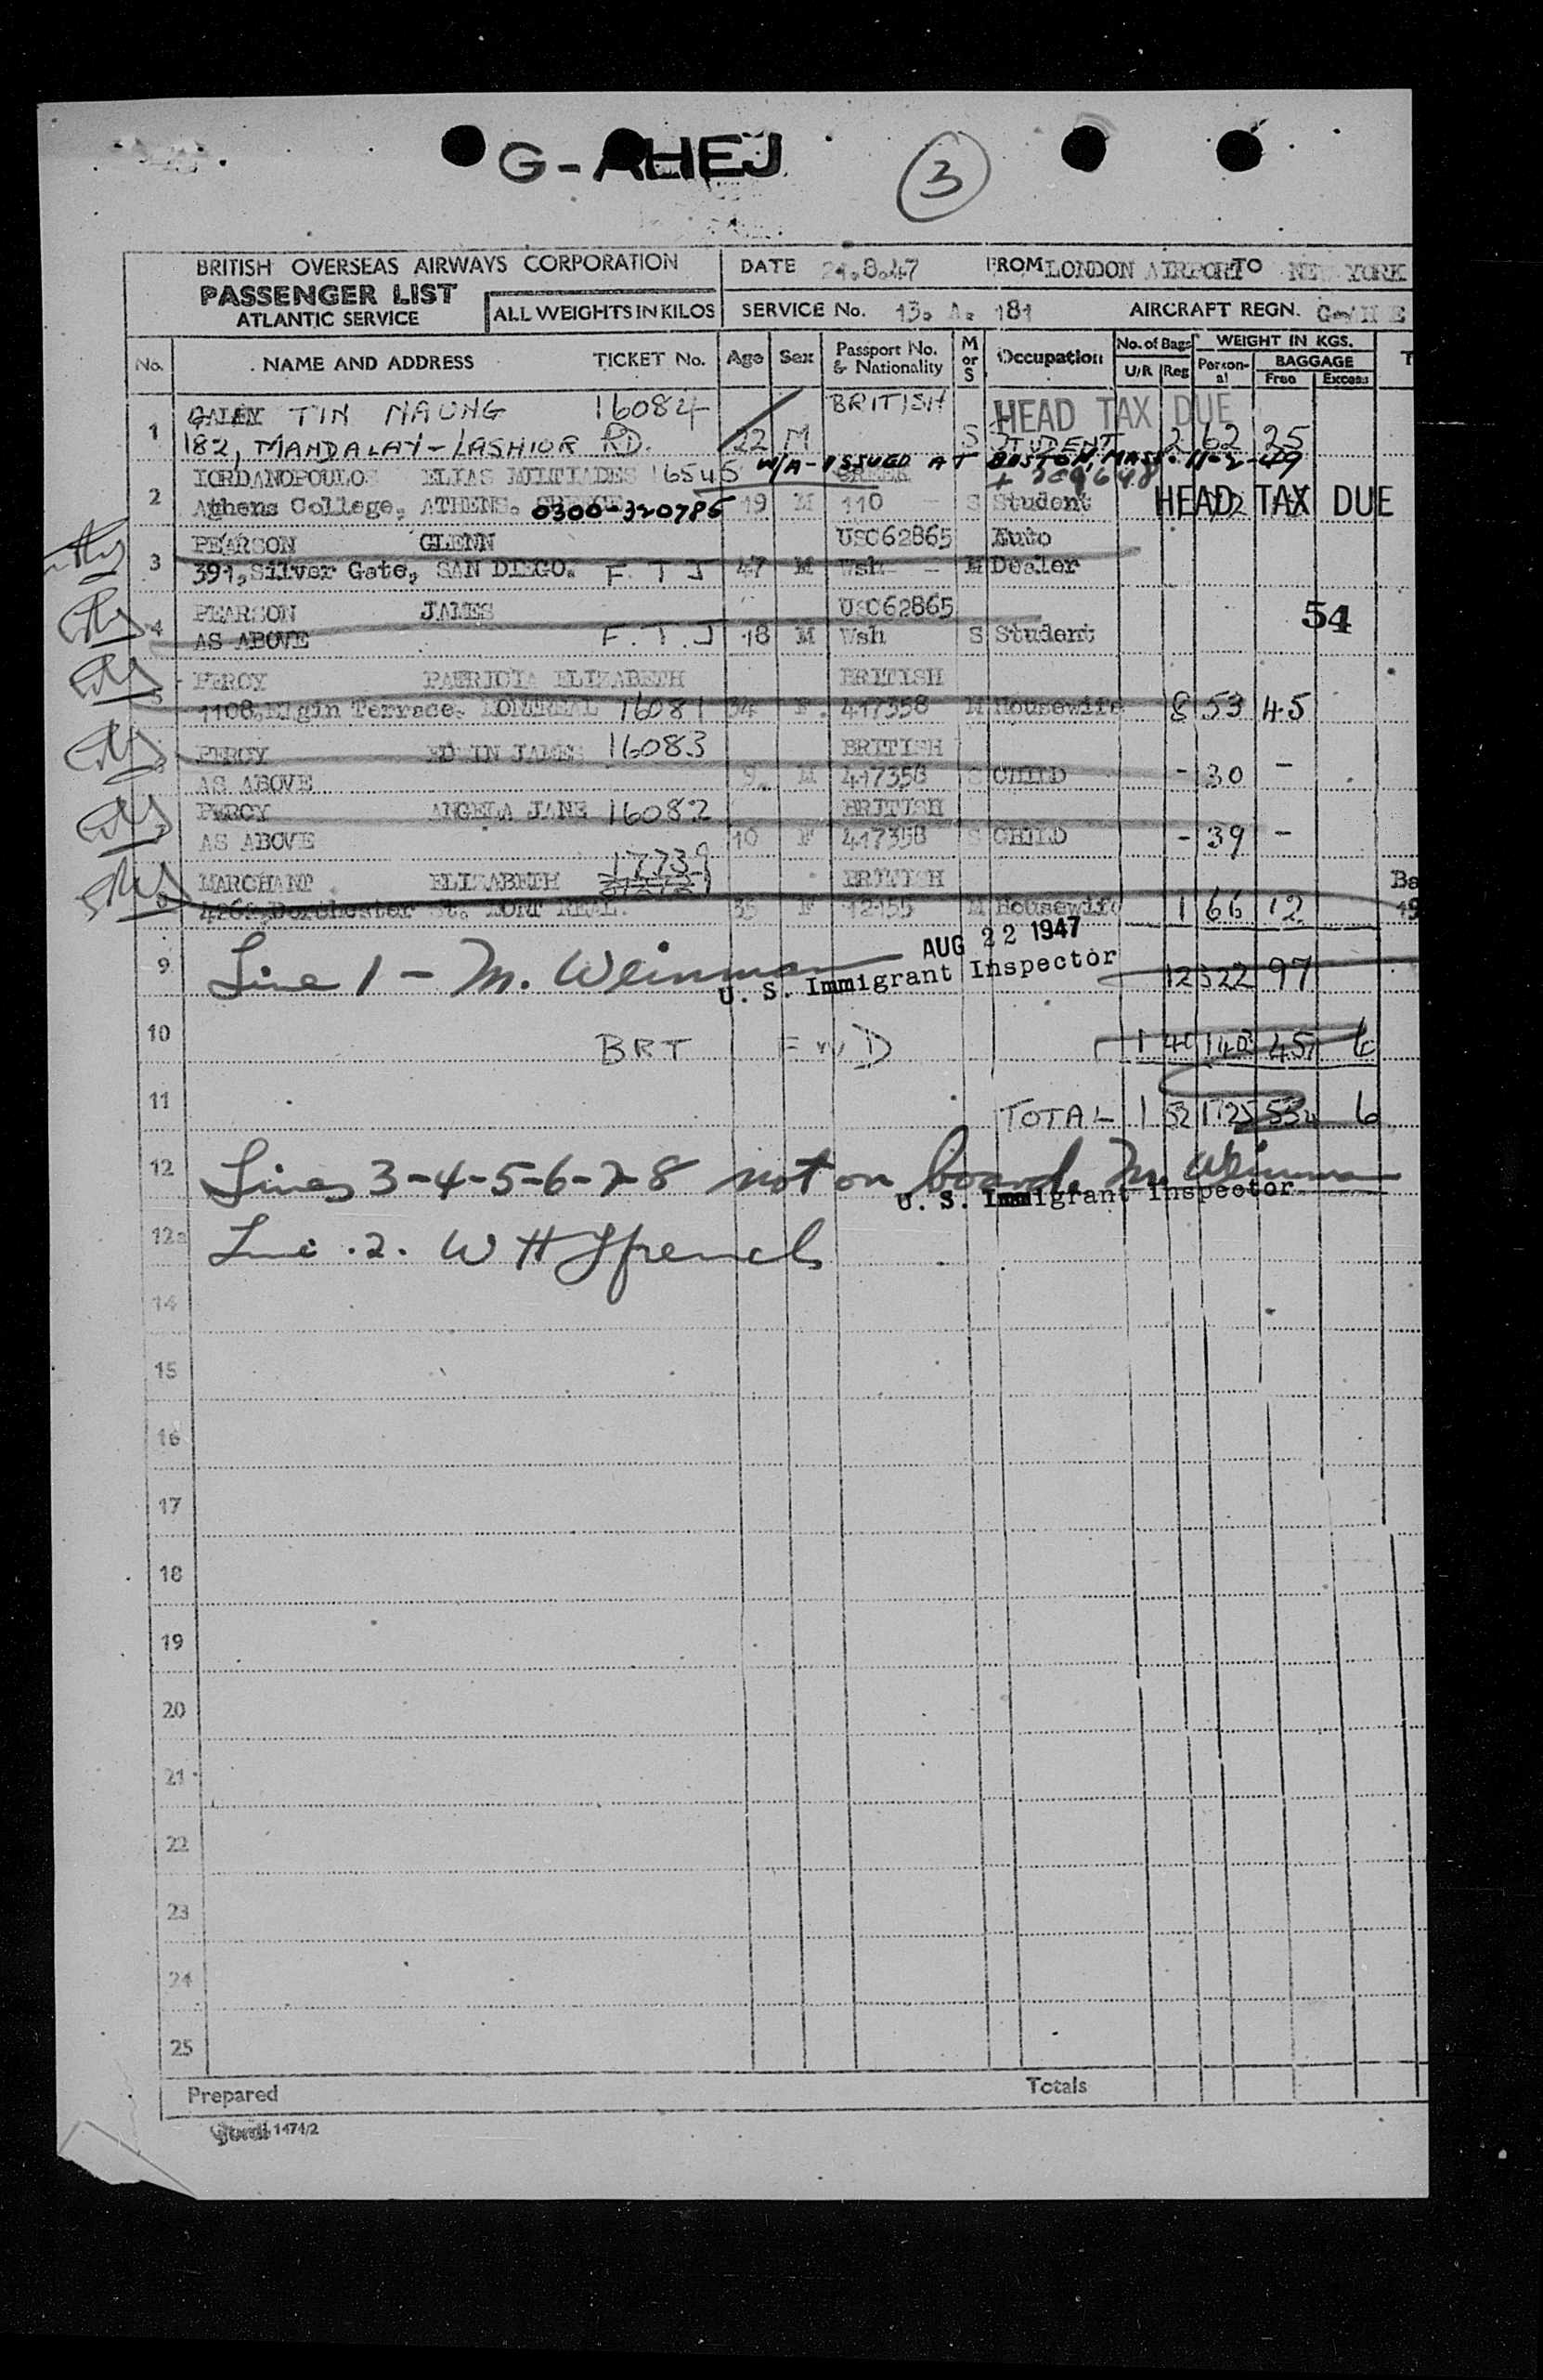 G-AHEJ
3
BRITISH OVERSEAS AIRWAYS CORPORATION
PASSENGER LIST
ATLANTIC SERVICE
ALL WEIGHTS IN KILOS
DATE 21.8.47 FROM LONDON AIRPORT TO NEW YORK
SERVICE No. 13. A. 181 AIRCRAFT REGN.
No. NAME AND ADDRESS TICKET No. Age Sex Passport No. & Nationality M or S Occupation No. of Bags U/R Reg WEIGHT IN KGS. Person-al BAGGAGE Free Excess T
1 TIN MAUNG 16084 BRITISH HEAD TAX DUE
182, MANDALAY-LASHIOR RD. 22 M S STUDENT 2 62 25
W/A-ISSUED AT BOSTON, MASS. 11-2-49
2 IORDANOPOULOS ELIAS MILTIADES 16545 GREEK
Athens College, ATHENS. GREECE 0300-320785 19 M 110 - S Student HEAD TAX DUE
3 PEARSON GLENN USC62865 Auto
391, Silver Gate, SAN DIEGO. F.T.J 47 M Wsh - - M Dealer
4 PEARSON JAMES USC62865 54
AS ABOVE F.T.J 18 M Wsh S Student
5 PERCY PATRICIA ELIZABETH BRITISH
1108, Elgin Terrace. MONTREAL 16081 34 F. 417358 M Housewife 8 53 45
PERCY EDWIN JAMES 16083 BRITISH
AS ABOVE 9. M 417358 S CHILD - 30 -
PERCY ANGELA JANE 16082 BRITISH
AS ABOVE 10 F 417358 S CHILD - 39 -
MARCHANT ELIZABETH 17739 BRITISH Ba
Dorchester St. MONT REAL. 35 F 12455 M Housewife 1 66 12 19
9 Line 1 - M. Weinman AUG 22 1947
U. S. Immigrant Inspector 12 322 97
10 BRT FWD
11 TOTAL 1 52 6
12 Lines 3-4-5-6-7-8 not on board. M. Weinman
U. S. Immigrant Inspector
12a Line .2. W H Ffrench
14
15
16
17
18
19
20
21
22
23
24
25
Prepared Totals
1474/2